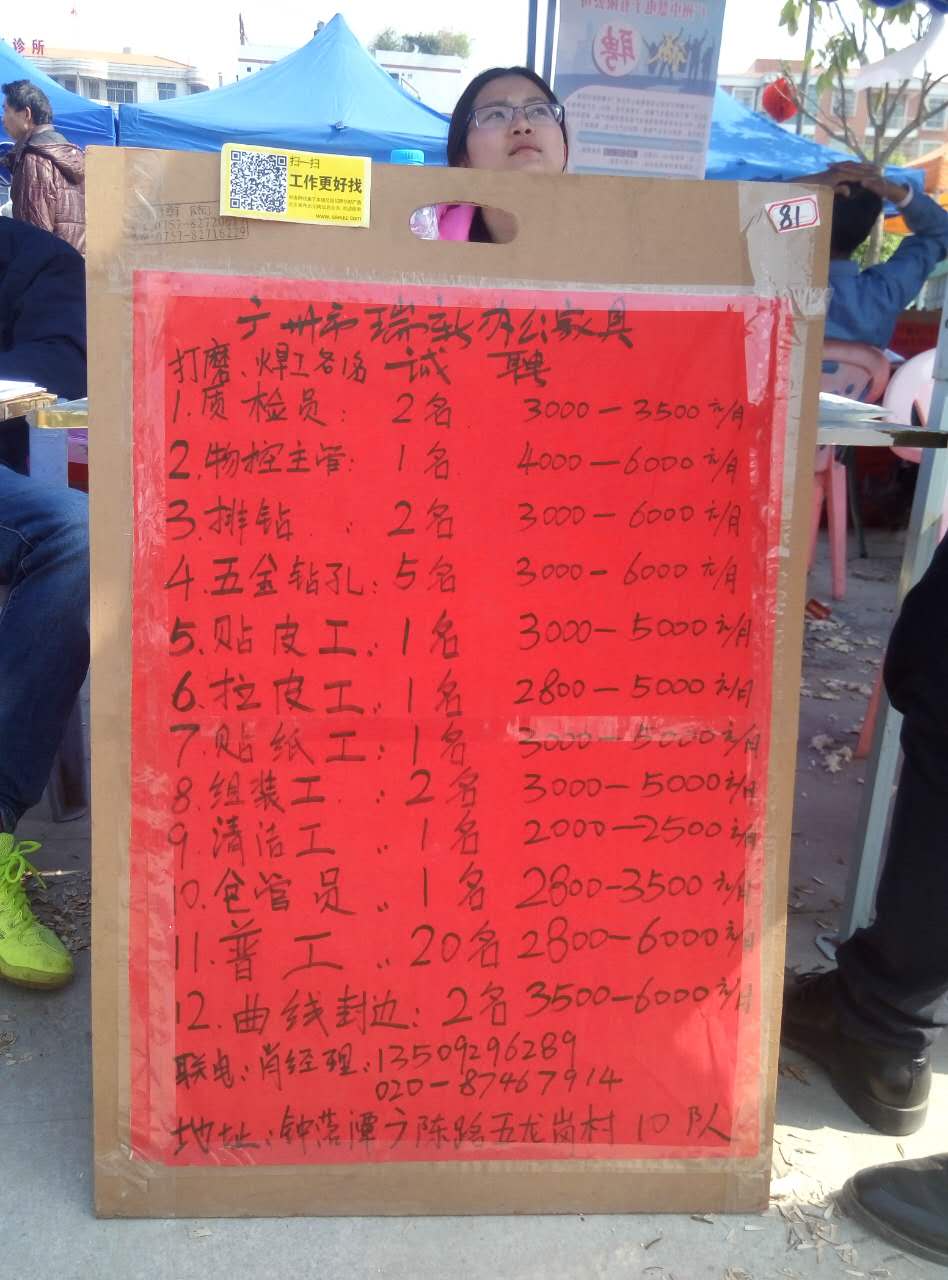 诊所
聘
扫一扫
工作更好找
81
广州市瑞新办公家具
打磨、焊工各1名 诚 聘
1.质检员: 2名 3000-3500元/月
2.物控主管: 1名 4000-6000元/月
3.排钻: 2名 3000-6000元/月
4.五金钻孔: 5名 3000-6000元/月
5.贴皮工: 1名 3000-5000元/月
6.拉皮工: 1名 2800-5000元/月
7.贴纸工: 1名 3000-5000元/月
8.组装工: 2名 3000-5000元/月
9.清洁工: 1名 2000-2500元/月
10.仓管员: 1名 2800-3500元/月
11.普工: 20名 2800-6000元/月
12.曲线封边: 2名 3500-6000元/月
联电:肖经理:13509296289
020-87467914
地址:钟落潭广陈路五龙岗村10队